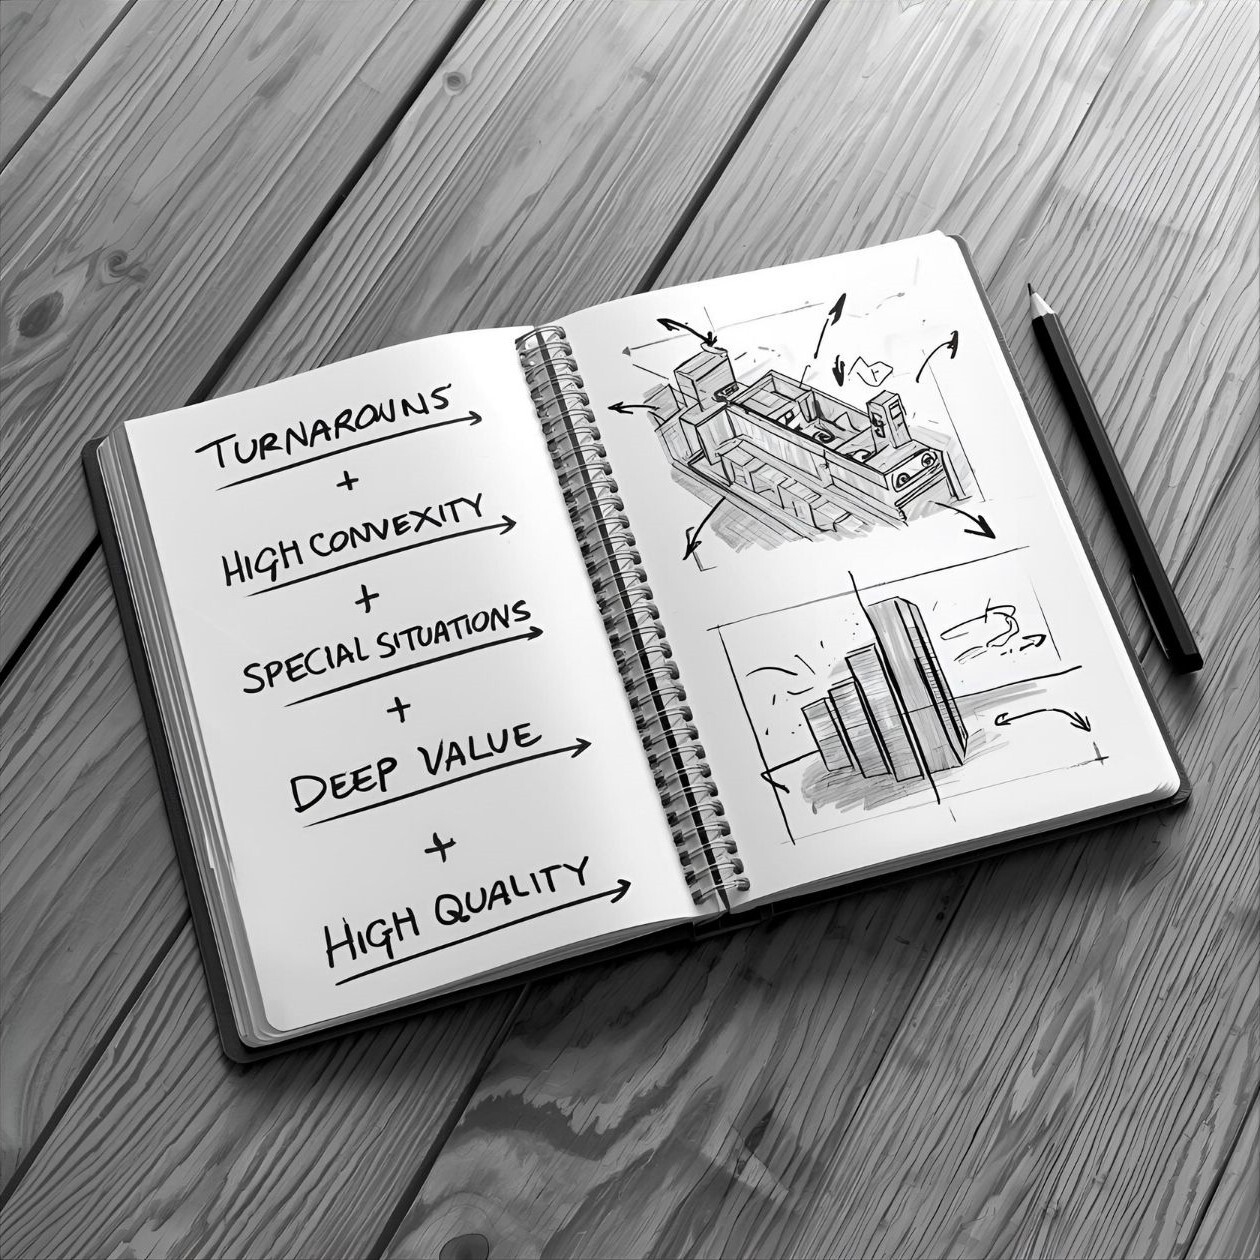 TURNAROUNS
+
HIGH CONVEXITY
+
SPECIAL SITUATIONS
+
DEEP VALUE
+
HIGH QUALITY